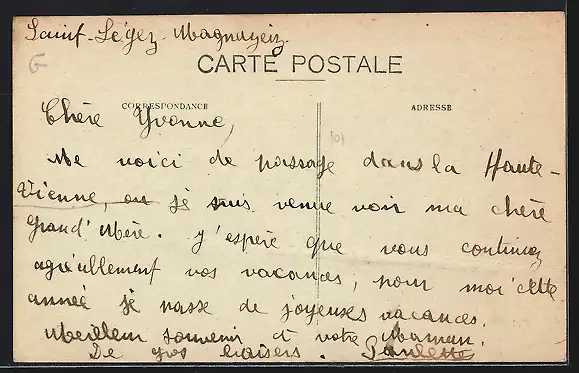 Saint-Léger-Magnazeix.
G
CARTE POSTALE
CORRESPONDANCE
ADRESSE
Chère Yvonne,
Me voici de passage dans la Haute-
Vienne, ou je suis venue voir ma chère
grand'Mère. J'espère que vous continuez
agréablement vos vacances, pour moi cette
année je passe de joyeuses vacances.
Meilleur souvenir et votre Maman.
De gros baisers. Paulette